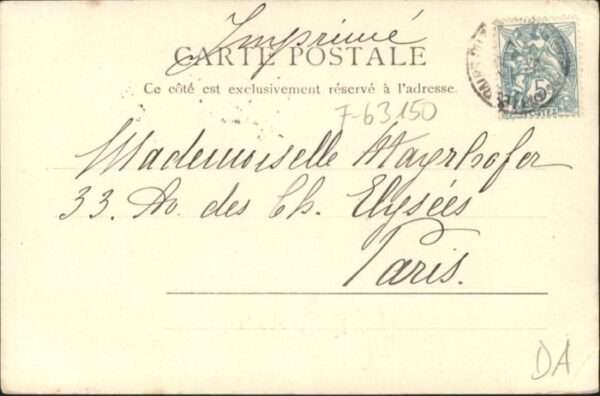 Imprimé
CARTE POSTALE
Ce côté est exclusivement réservé à l'adresse.
7-63150
Mademoiselle Mayrhofer
33. Av. des Ch. Elysées
Paris.
5
POSTES
DA